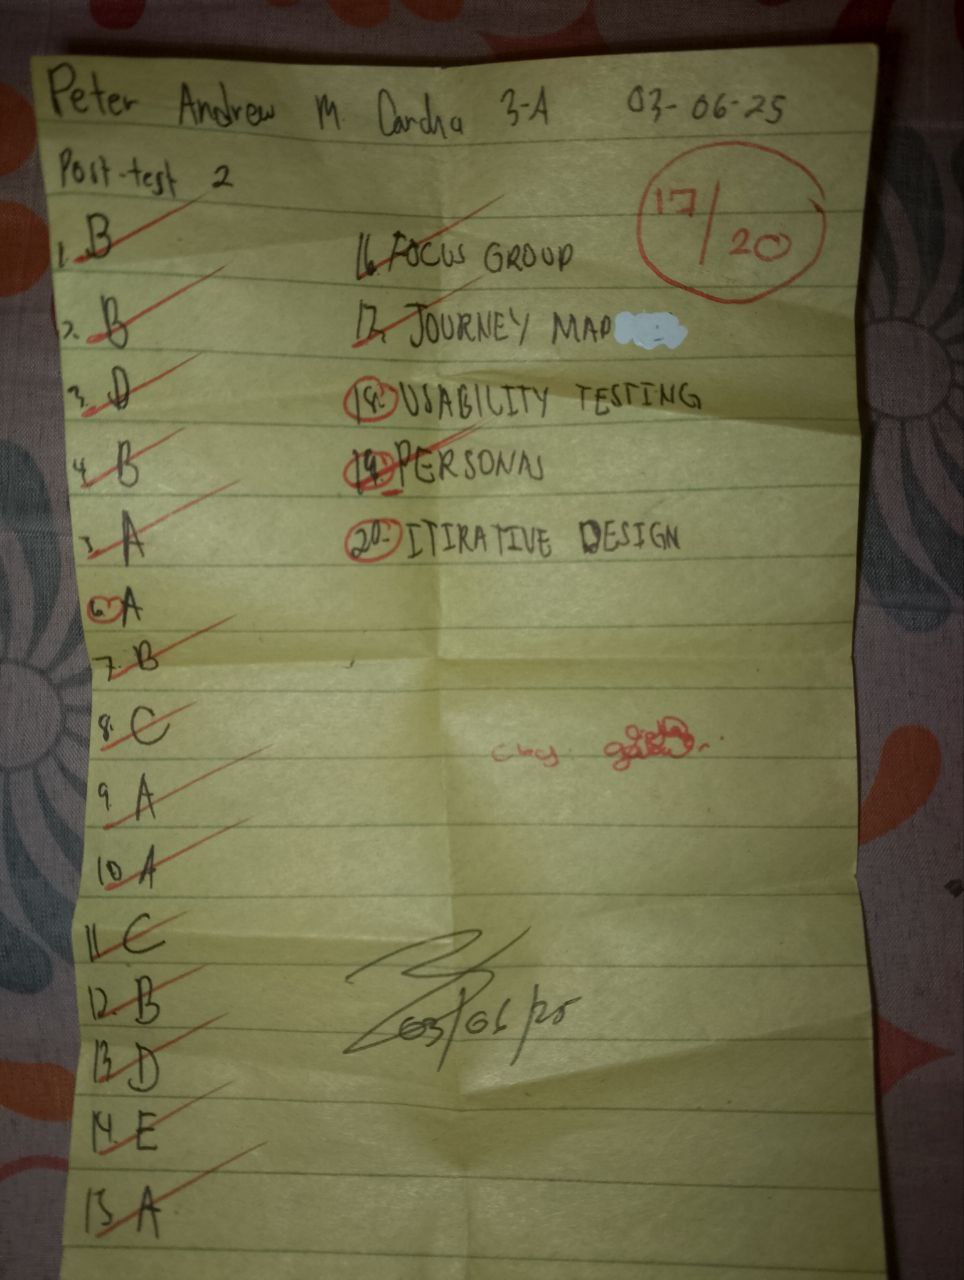 Peter Andrew M. 3-A 03-06-25
Post-test 2
17/20
1. B
2. B
3. D
4. B
5. A
6. A
7. B
8. C
9. A
10. A
11. C
12. B
13. D
14. E
15. A
16. FOCUS GROUP
17. JOURNEY MAP
18. USABILITY TESTING
19. PERSONAS
20. ITIRATIVE DESIGN
03/06/25